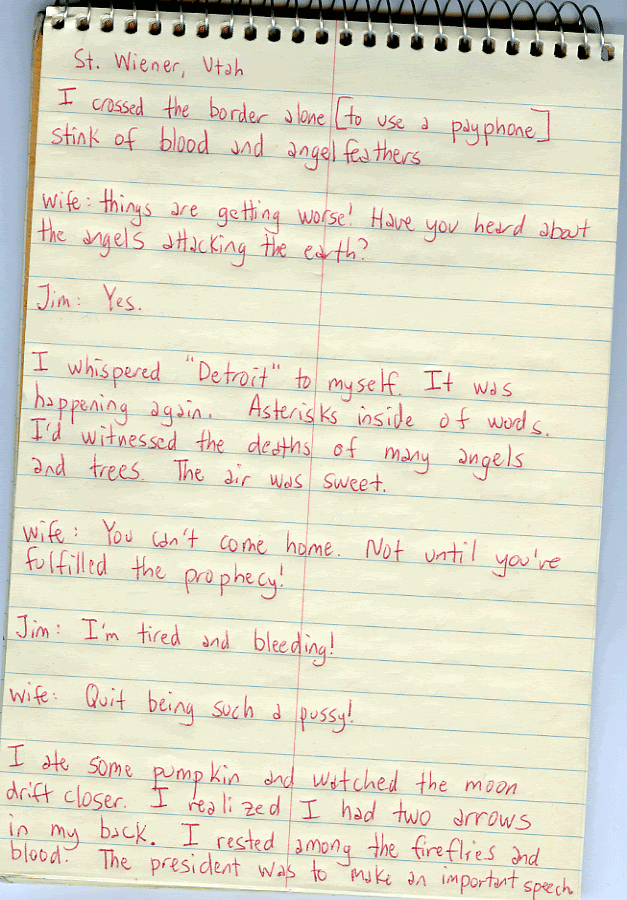 St. Wiener, Utah
I crossed the border alone [to use a payphone]
stink of blood and angel feathers
wife: things are getting worse! Have you heard about
the angels attacking the earth?
Jim: Yes.
I whispered "Detroit" to myself. It was
happening again. Asterisks inside of words.
I'd witnessed the deaths of many angels
and trees. The air was sweet.
wife: You can't come home. Not until you've
fulfilled the prophecy!
Jim: I'm tired and bleeding!
wife: Quit being such a pussy!
I ate some pumpkin and watched the moon
drift closer. I realized I had two arrows
in my back. I rested among the fireflies and
blood. The president was to make an important speech